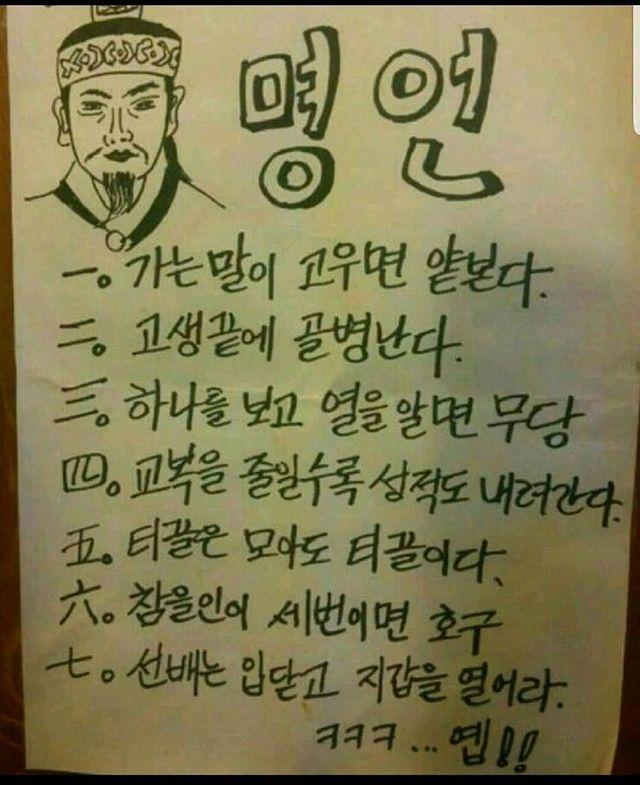 명언
一。 가는말이 고우면 얕본다.
二。 고생끝에 골병난다.
三。 하나를 보고 열을 알면 무당
四。 교복을 줄일수록 성적도 내려간다.
五。 티끌은 모아도 티끌이다.
六。 참을인이 세번이면 호구
七。 선배는 입닫고 지갑을 열어라.
ㅋㅋㅋ... 옙!!